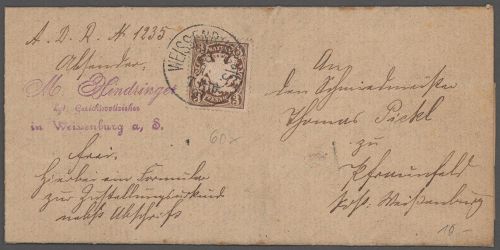 A. D. R. № 1235
Absender:
M. Hindringer
kgl. Gerichtsvollzieher
in Weissenburg a, S.
frei.
Hierbei ein Formular
zur Zustellungsurkunde
nebst Abschrift
WEISSENB
BAYERN
3 PFENNIG 3
60x
An
den Schmiedmeister
Thomas Pickl
zu
Pfraunfeld
Post: Weißenburg
10 -